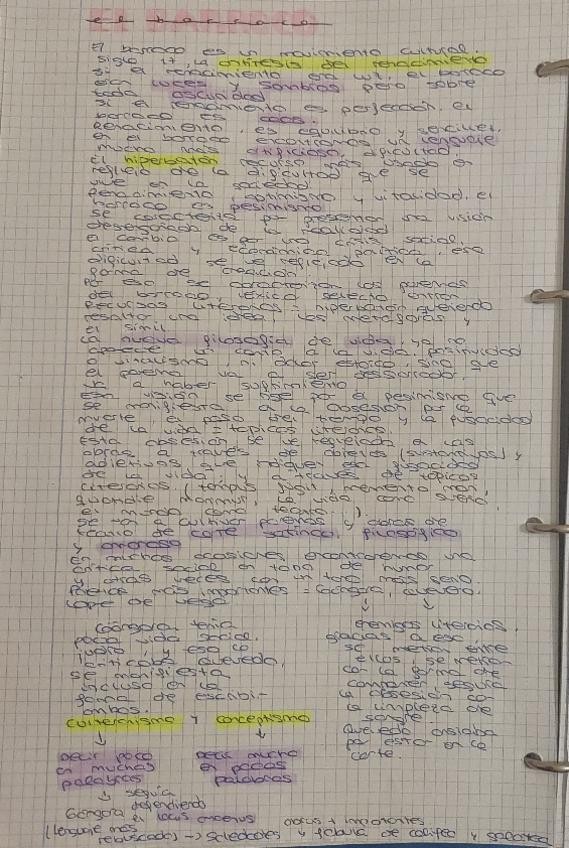 EL BARROCO
el barroco
El barroco es un movimiento cultural.
siglo 17, la antítesis del renacimiento
si el renacimiento era luz, el barroco
son luces y sombras pero sobre
toda oscuridad
si el renacimiento es perfección, el
barroco es caos.
Renacimiento, es equilibrio y
en el barroco encontramos un lenguaje
mucho más artificioso, dificultad.
El hiperbaton recurso más usado en
reflejo de la dificultad que se
vive en la sociedad.
Renacimiento optimismo y vitalidad, el
barroco es pesimismo
se caracteriza por presentar una visión
desengañada de la realidad
el cambio es por una crisis social,
crítica y económica política, esa
dificultad se ve reflejado en la
forma de creación.
Por eso se caracterizan los poemas
del barroco, léxico selecto, entran
Recursos literarios = hiperbaton queriendo
resaltar una idea, las metáforas y
el simil
La nueva filosofía de vida, ya no
aparece un canto a la vida,
ni dolor estoico, sino que
el poema va a ser desgarrador.
va a haber sufrimiento
Esa visión se rige por el pesimismo que
se manifiesta a la obsesión por la
muerte el paso del tiempo y la fugacidad
de la vida = tópicos literarios.
Esta obsesión se ve reflejada en las
obras a través de objetos (sustantivos) y
adjetivos que indiquen esa fugacidad
de la vida y a través de tópicos
literarios (tempus fugit, memento mori,
quotidie morimur, la vida como sueño,
el mundo como teatro...).
se van a cultivar poemas y obras de
teatro de corte satírico, filosófico
y amoroso
en muchas ocasiones encontraremos una
crítica social en tono de humor
y otras veces con un tono más serio.
Poetas más importantes = Góngora, Quevedo,
Lope de Vega
Góngora tenía
poca vida social,
judío, y eso lo
criticaba Quevedo,
se manifiesta
incluso en la
forma de escribi-
ambos.
enemigos literarios.
gracias a eso
se meten entre
ellos, se meten
con la forma de
componer seguía
la obsesión con
la limpieza de
sangre.
Quevedo ansiaba
por estar en la
corte.
culteranismo y conceptismo
decir poco en muchas palabras
decir mucho en pocas palabras
seguía
Góngora defendiendo
el locus amoenus
(lenguaje más
rebuscado) → soledades y fábula de polifemo y galatea
obras + importantes